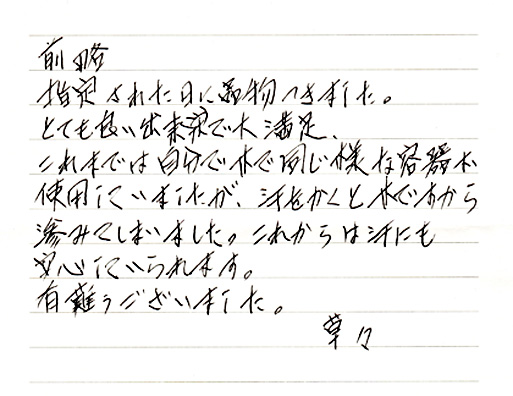 前略
指定された日に品物つきました。
とても良い出来栄で大満足、
これまでは自分で木で同じ様な容器を
使用していましたが、汗をかくと木ですから
滲みてしまいました。これからは汗にも
安心していられます。
有難うございました。
草々